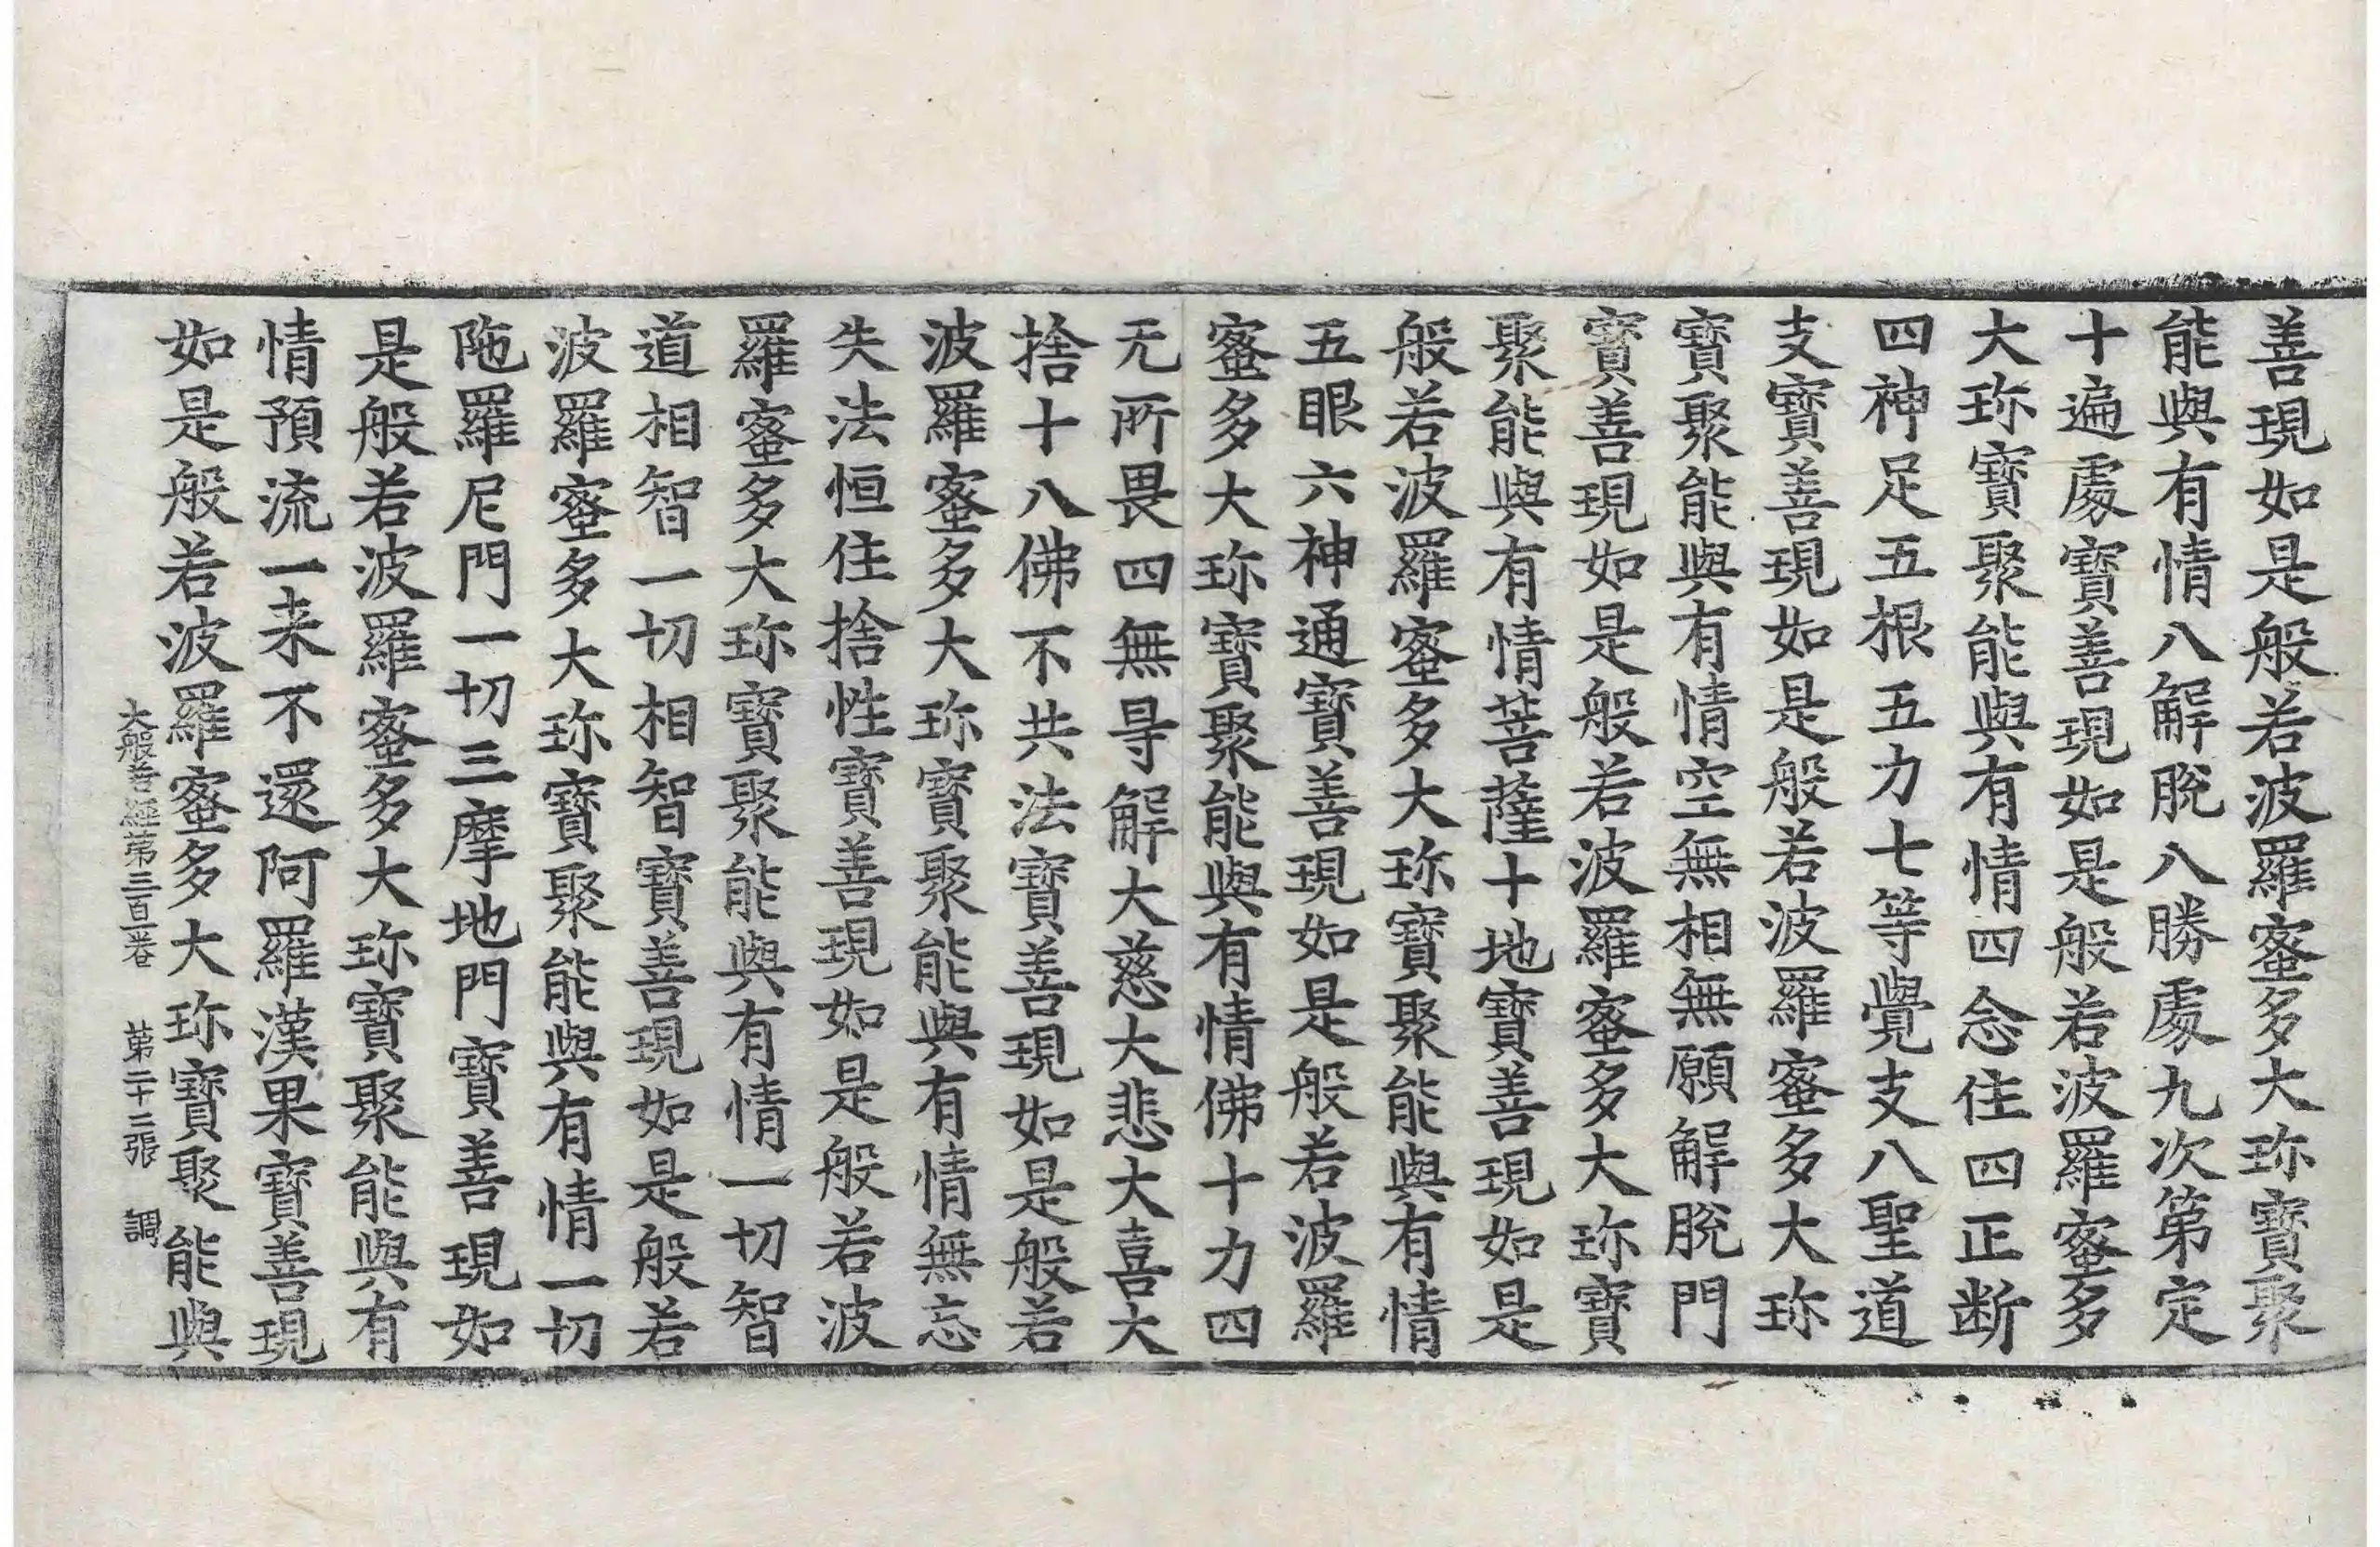 善現如是般若波羅蜜多大珎寶聚
能與有情八解脫八勝處九次第定
十遍處寶善現如是般若波羅蜜多
大珎寶聚能與有情四念住四正断
四神足五根五力七等覺支八聖道
支寶善現如是般若波羅蜜多大珎
寶聚能與有情空無相無願解脫門
寶善現如是般若波羅蜜多大珎寶
聚能與有情菩薩十地寶善現如是
般若波羅蜜多大珎寶聚能與有情
五眼六神通寶善現如是般若波羅
蜜多大珎寶聚能與有情佛十力四
无所畏四無㝵解大慈大悲大喜大
捨十八佛不共法寶善現如是般若
波羅蜜多大珎寶聚能與有情無忘
失法恒住捨性寶善現如是般若波
羅蜜多大珎寶聚能與有情一切智
道相智一切相智寶善現如是般若
波羅蜜多大珎寶聚能與有情一切
陁羅尼門一切三摩地門寶善現如
是般若波羅蜜多大珎寶聚能與有
情預流一来不還阿羅漢果寶善現
如是般若波羅蜜多大珎寶聚能與
大般若經第三百一卷 第二十三張 調